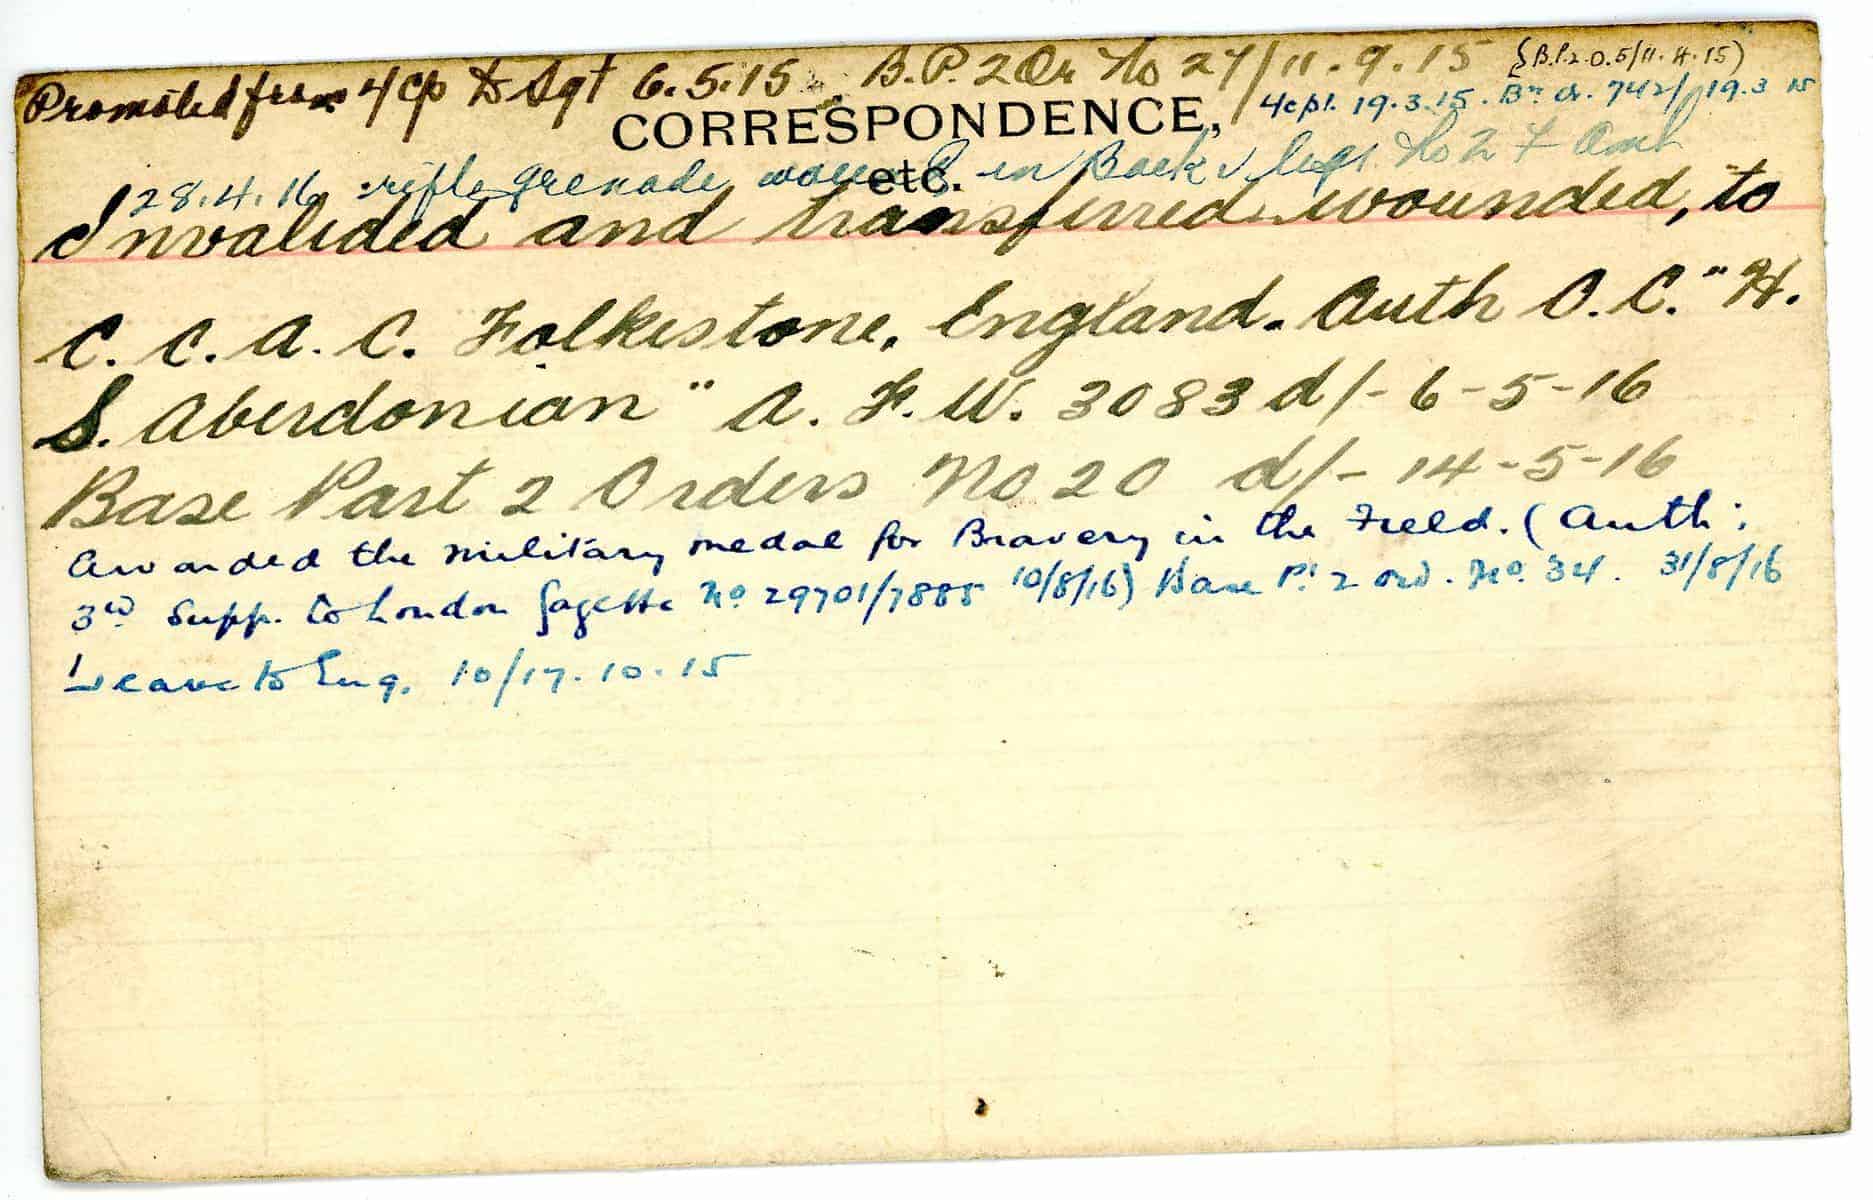 Promoted from L/Cp to Sgt 6.5.15. B.P. 2 Or No 27/11.9.15 (B.P.2.O.5/11.4.15)
L/cpl. 19.3.15. Bn Or. 742/19.3.15
CORRESPONDENCE,
etc.
28.4.16 rifle grenade wound in Back & legs No 2 F Amb
Invalided and transferred wounded, to
C. C. A. C. Folkestone, England. Auth O.C. "H.
S. Aberdonian" A. F. W. 3083 d/- 6-5-16
Base Part 2 Orders No 20 d/- 14-5-16
Awarded the Military medal for Bravery in the Field. (Auth:
3rd Supp. to London Gazette No 29701/7885 10/8/16) Base Pt 2 ord. No. 34. 31/8/16
Leave to Eng. 10/17.10.15